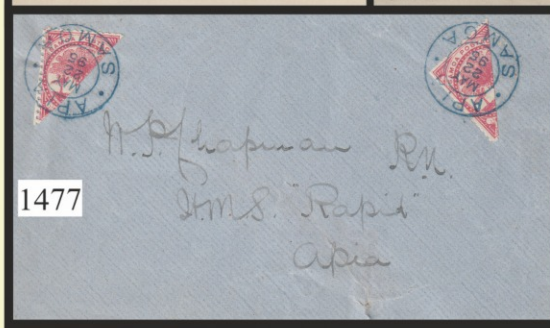 APIA SAMOA
MAY
APIA SAMOA
MAY
W. P. Chapman R.N.
H.M.S. "Rapid"
Apia
1477